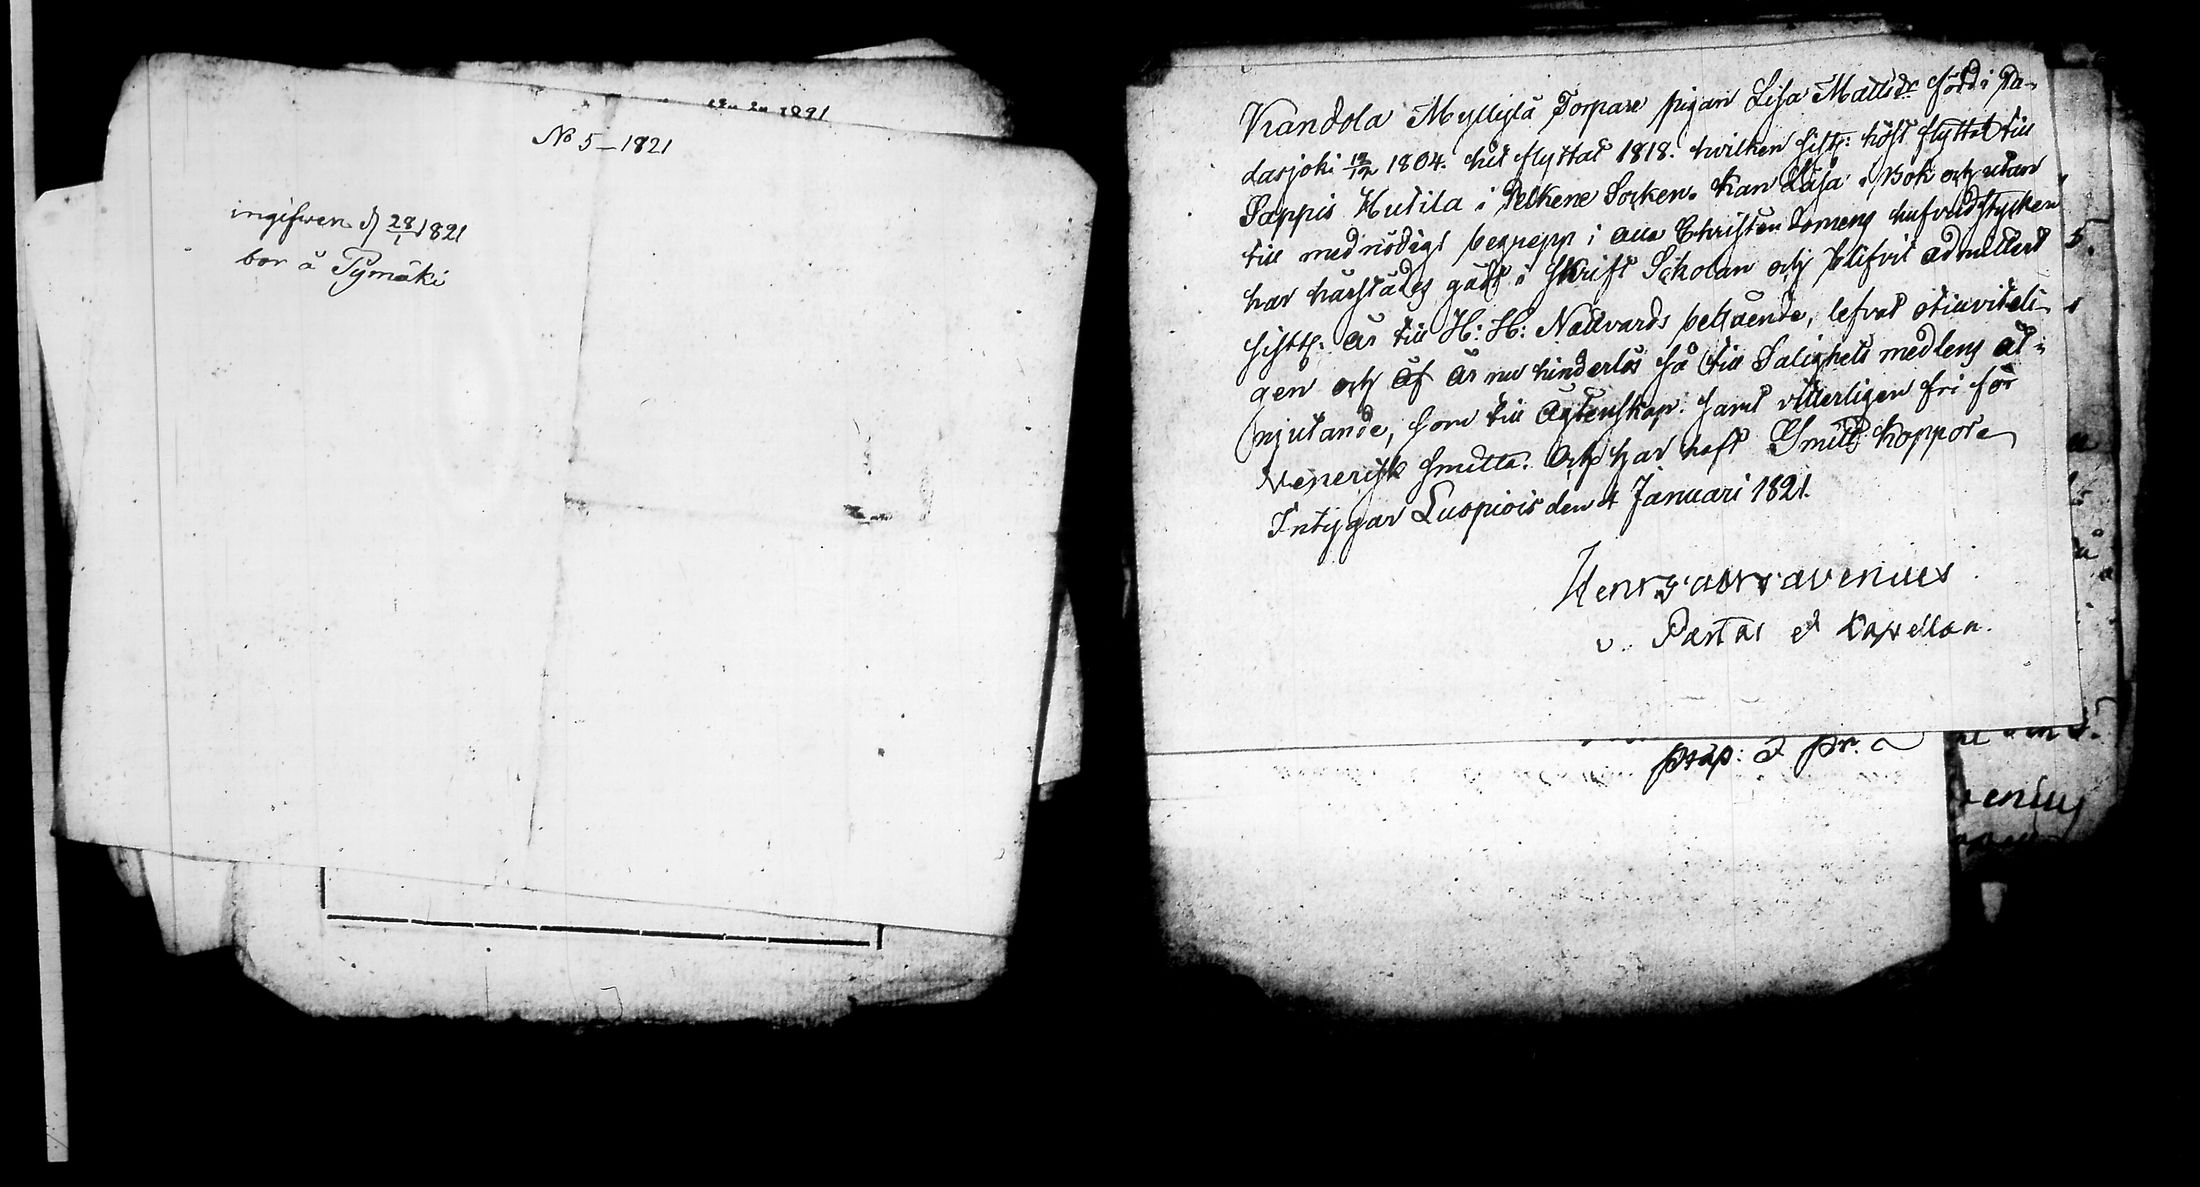 No 5 – 1821
ingifwen d 28/1 1821
bor å Pymäki
Vrandola Myllylä Torpare pigan Lisa Mattsdr född i Pa-
dasjoki 12/12 1804. hit flyttat 1818. hwilken sistl: höst flyttat till
Sappis Hutila i Pelkene Socken. Kan Läsa i Bok och utan
till med nödigt begrepp i alla Christendomens hufvudstycken
har härstädes gått i Skrift Scholan och blifvit admitterd
sistl. år till H: H: Nattvards begående, lefvat otiuviteli-
gen och är nu hinderlös så till Salighets medlens åt-
njutande, som till Ägtenskap. samt vitterligen fri för
Venerisk smitta. Och har haft Smitt koppor
Intygar Luopiois den 4 Januari 1821.
v. Pastor et Capellan.
prap: I pr.